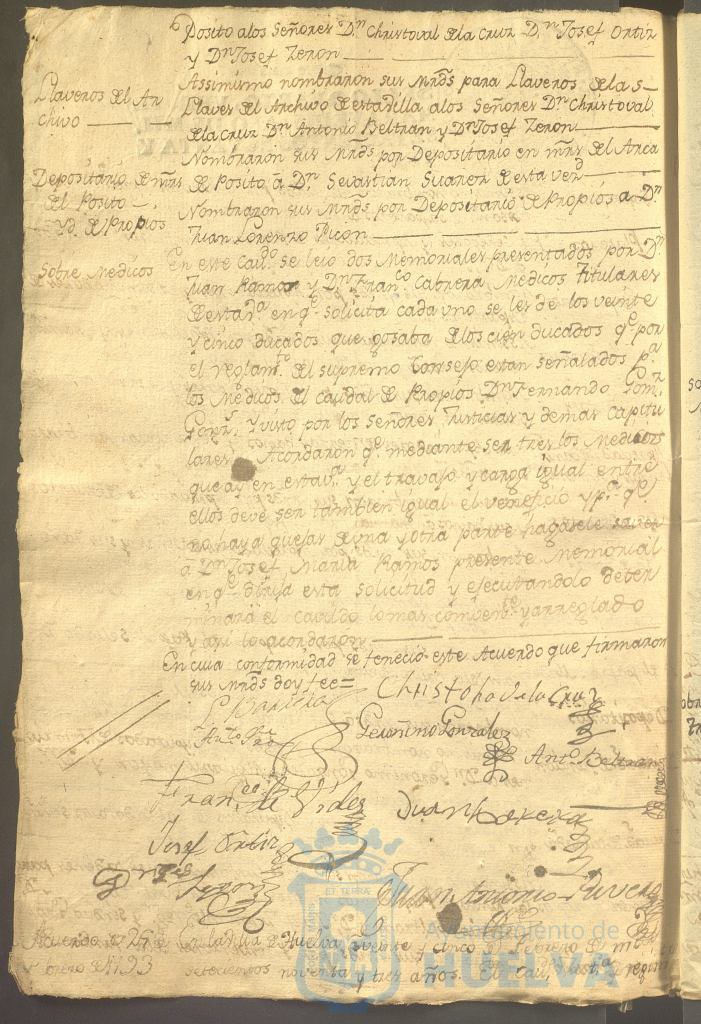 Posito a los Señores Dn. Christoval de la Cruz Dn. Josef Ortiz
y Dn. Josef Zeron
Llaveros del Ar
chivo
Assimismo nombraron sus Mrds. para Llaveros de las
Llaves del Archivo de esta Villa a los Señores Dn. Christoval
de la Cruz Dn. Antonio Beltran y Dn. Josef Zeron
Depositario de mrs.
del Posito
Yd. de Propios
Nombraron sus Mrds. por Depositario en mrs. del Arca
de Posito a Dn. Sevastian Suarez de esta vend
Nombraron sus Mrds. por Depositario de Propios a Dn.
Juan Lorenzo Picon
Sobre Medicos
En este Cavdo. se leio dos Memoriales presentados por Dn.
Juan Ramos y Dn. Franco. Cabrera Medicos Titulares
de esta va. en qe. solicita cada uno se les de los veinte
y cinco ducados que gosaba de los cien ducados qe. por
el reglamto. del supremo Consejo estan señalados pa.
los Medicos del caudal de Propios Dn. Fernando Gomz.
Y visto por los Señores Justicias y demas capitu
lares Acordaron qe. mediante ser tres los Medicos
que ay en esta va. y el travajo y carga igual entre
ellos deve ser tambien igual el veneficio y pr. qe.
no haya quejas de una y otra parte hagasele saver
a Dn. Josef Maria Ramos presente Memorial
en qe. dirija esta solicitud y ejecutandolo deter
minará el cavildo lo mas combente. y arreglado
y asi lo acordaron
En cuia conformidad se fenecio este Acuerdo que firmaron
sus Mrds. doy fee=
Christobal de la Cruz
Geronimo Gonzalez
Anto. Beltran
Franco. de Vides
Josef Ortiz
Juan Antonio Rivera
Acuerdo de 25 de
febrero de 1793
En la Villa de Huelva a veinte y cinco de febrero de mil
setecientos noventa y tres años. El
Ayuntamiento de
HUELVA